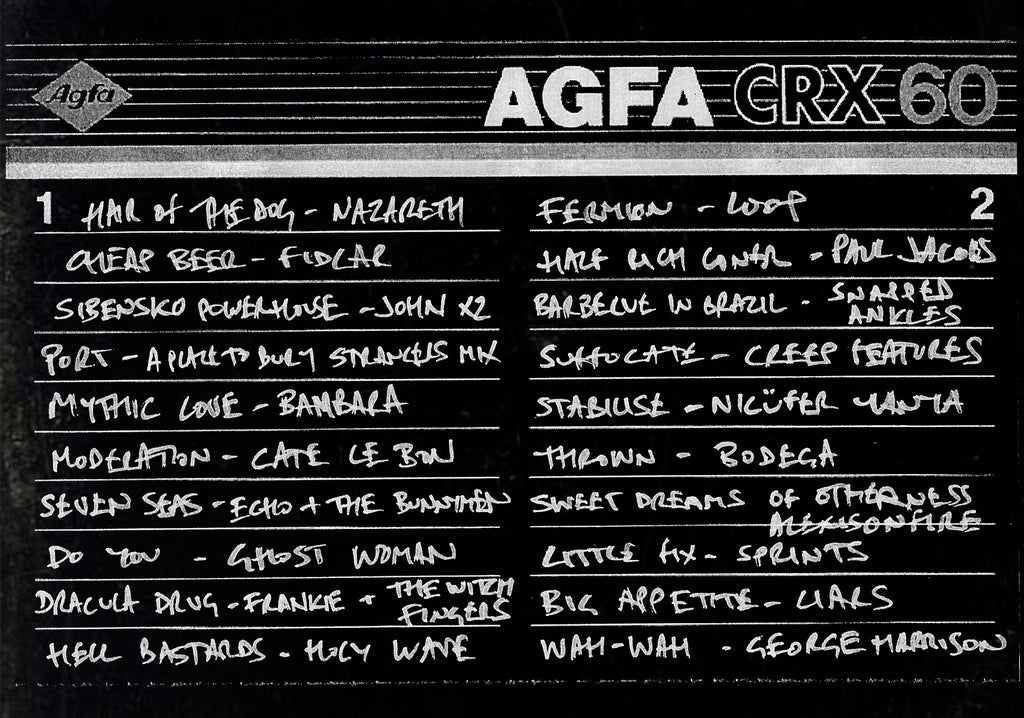 Agfa
AGFA CRX 60
1
HAIR OF THE DOG - NAZARETH
CHEAP BEER - FIDLAR
SIBENSKO POWERHOUSE - JOHN X2
PORT - A PLACE TO BURY STRANGERS MIX
MYTHIC LOVE - BAMBARA
MODERATION - CATE LE BON
SEVEN SEAS - ECHO + THE BUNNYMEN
DO YOU - GHOST WOMAN
DRACULA DRUG - FRANKIE + THE WITCH
FINGERS
HELL BASTARDS - HOLY WAVE
2
FERMION - LOOP
HALF RICH LONER - PAUL JACOBS
BARBECUE IN BRAZIL - SNAPPED
ANKLES
SUFFOCATE - CREEP FEATURES
STABILISE - NILÜFER YANYA
THROWN - BODEGA
SWEET DREAMS OF OTHERNESS
ALEXISONFIRE
LITTLE FIX - SPRINTS
BIG APPETITE - LIARS
WAH-WAH - GEORGE HARRISON